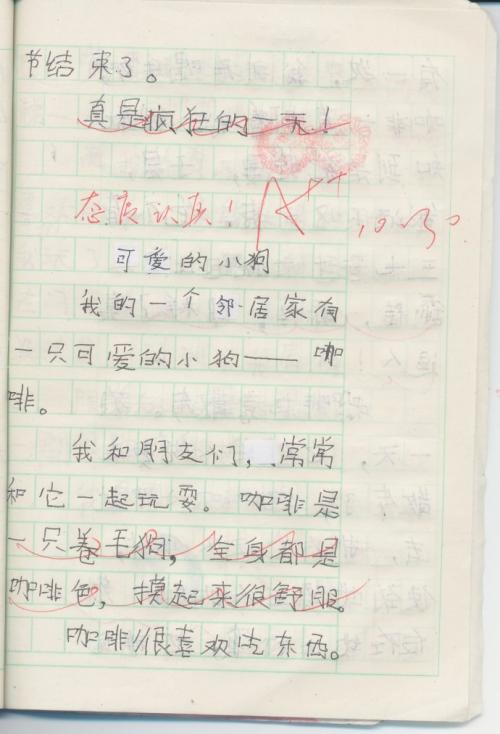 节结束了。
真是疯狂的一天！
态度认真！A++ 10.30
可爱的小狗
我的一个邻居家有
一只可爱的小狗——咖
啡。
我和朋友们，常常
和它一起玩耍。咖啡是
一只卷毛狗，全身都是
咖啡色，摸起来很舒服。
咖啡很喜欢吃东西。